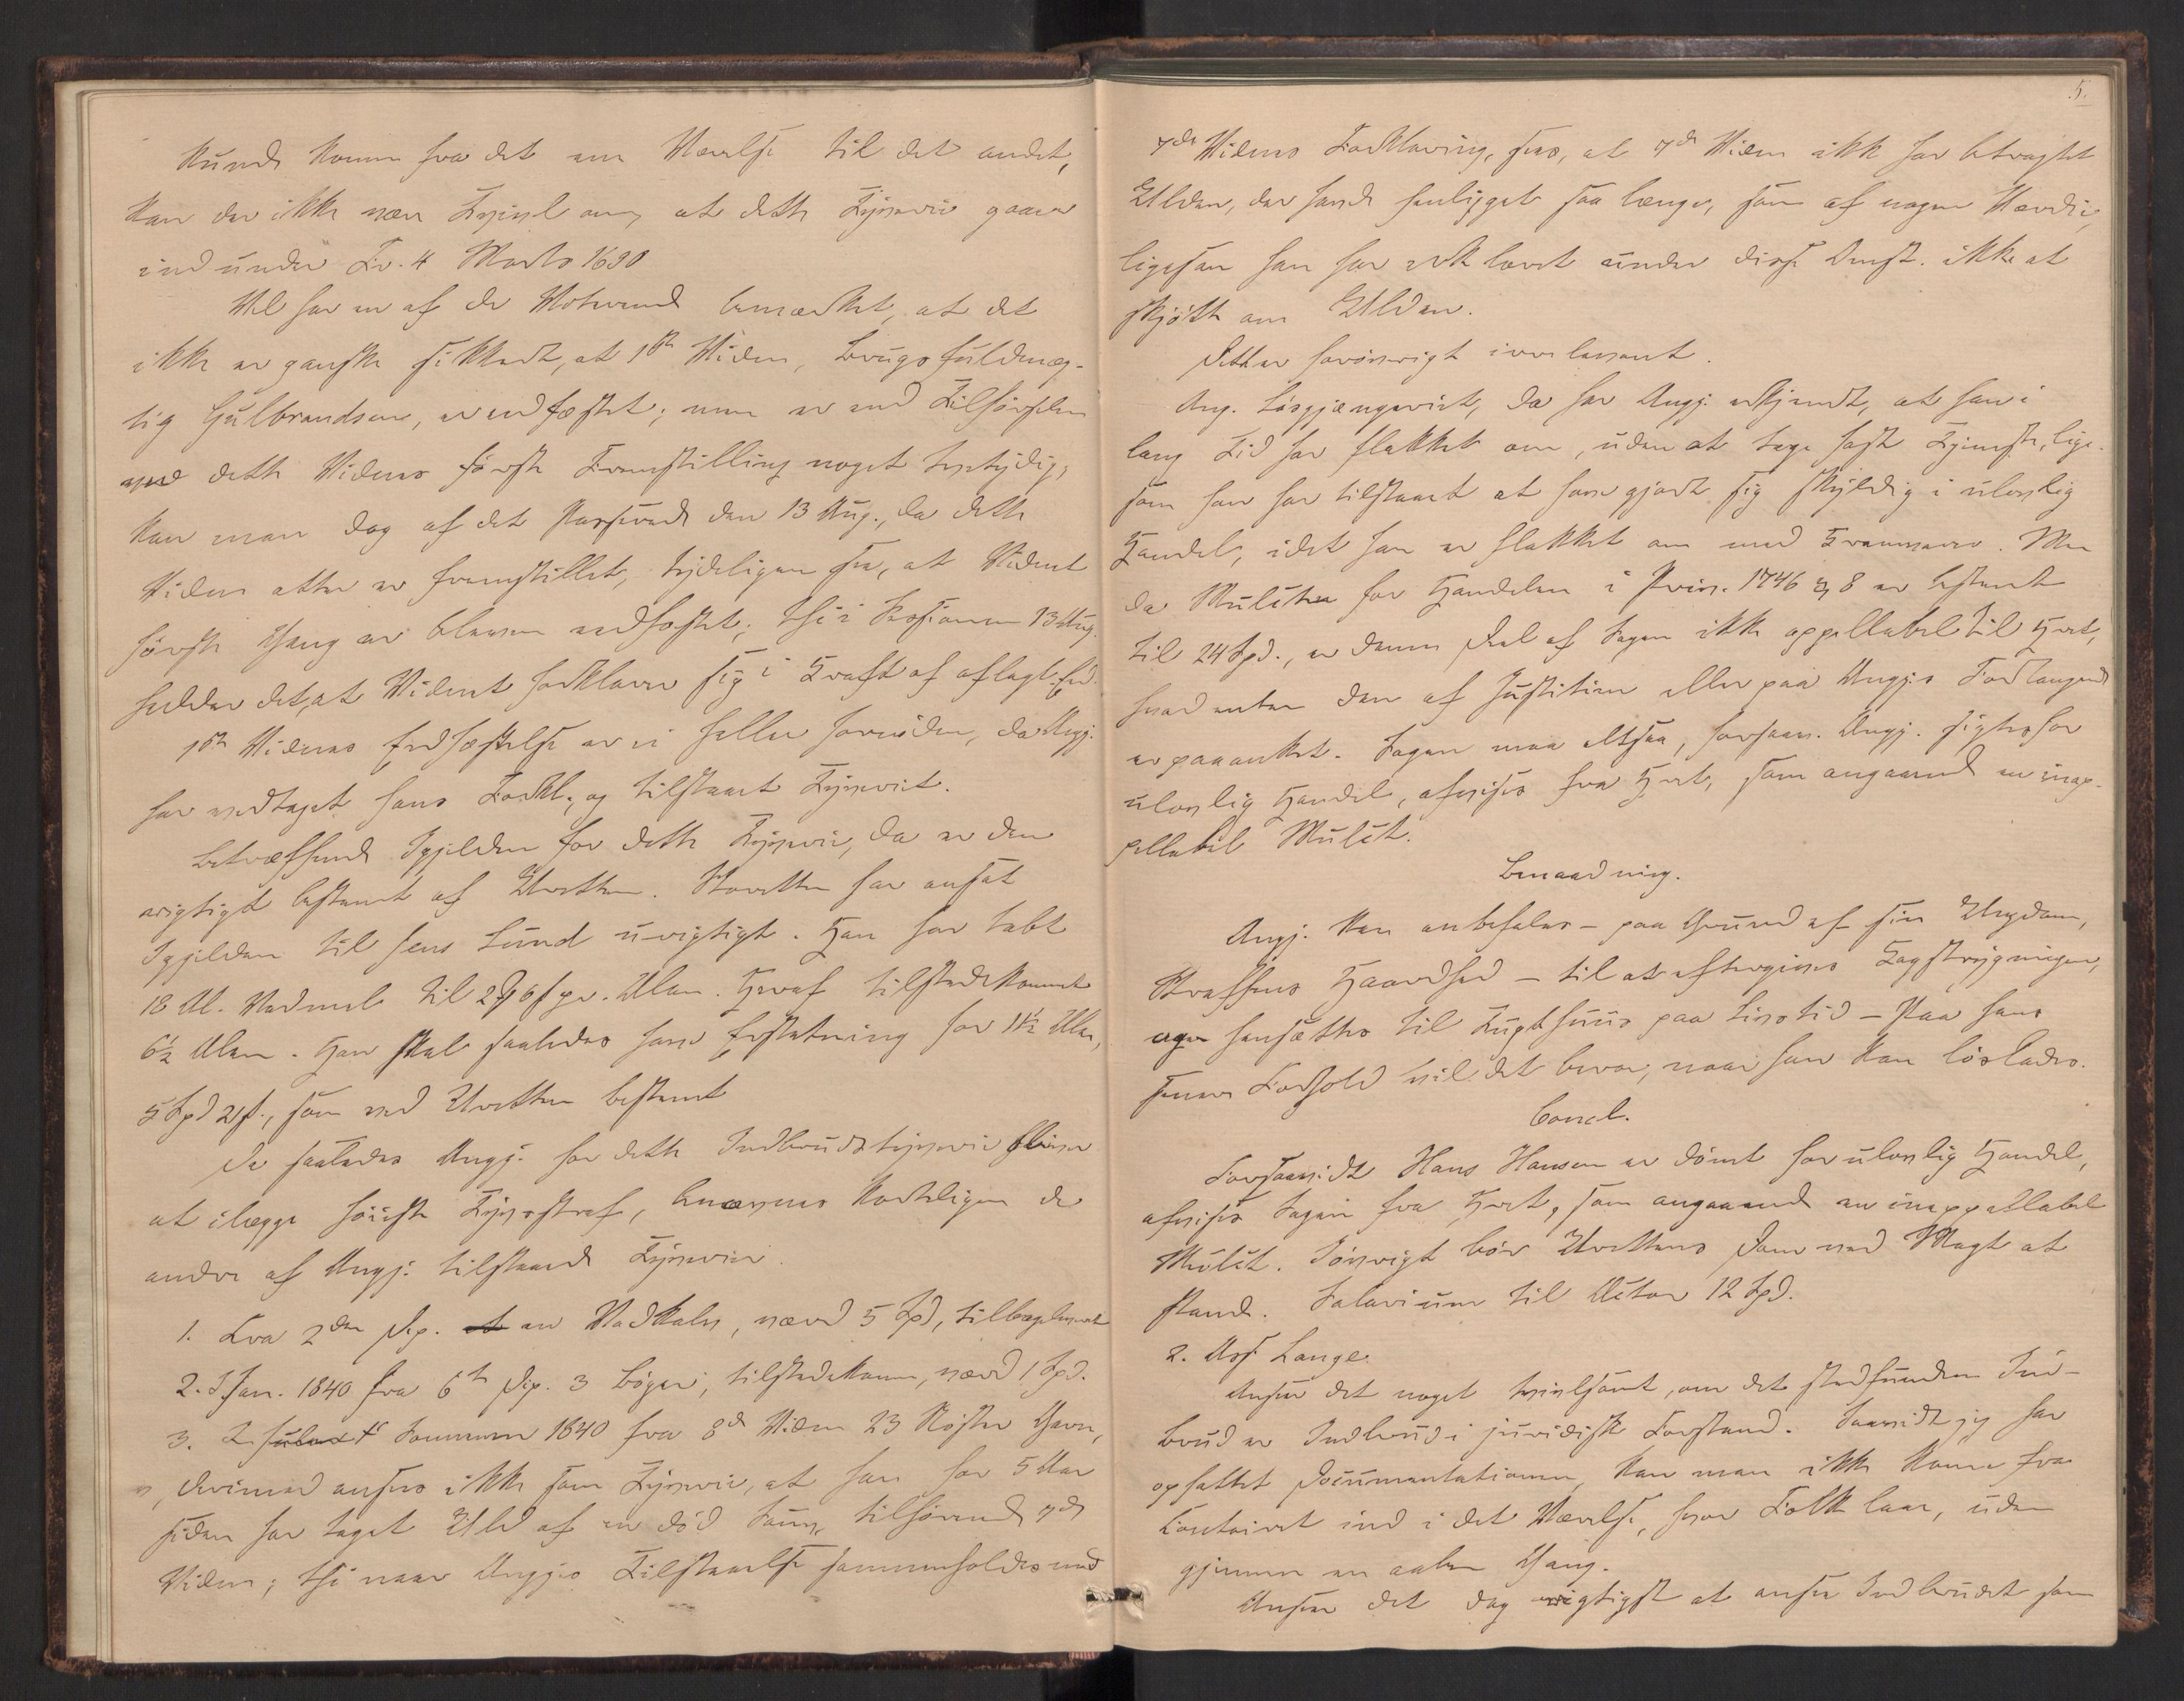 kunde komme fra det ene Værelse til det andet,
kan der ikke være Tvivl om, at dette Tyverie gaaer
ind under Fr. 4 Marts 1690
Vel har en af de Voterende bemærket, at det
ikke er ganske sikkert, at 1ste Vidne, Brugsfuldmæg-
tig Gulbrandsen, er edfæstet; men er end Tilførselen
ved dette Vidnes første Fremstilling noget tvetydig,
kan man dog af det Passerede den 13 Aug., da dette
Vidne atter er fremstillet, tydeligen see, at Vidnet
første Gang er bleven edfæstet; thi i Sessionen 13 Aug.
hedder det, at Vidnet forklarer sig i Kraft af aflagt Ed.
1ste Vidnes Edfæstelse er ei heller fornøden, da Angj.
har vedtaget hans Forkl. og tilstaaet Tyveriet.
Betræffende Igjelden for dette Tyverie, da er den
rigtigt bestemt af Uretten. Stvretten har ansat
Igjelden til Jens Lund urigtigt. Han har tabt
18 Al. Vadmel til 2 6 s pr. Alen. Heraf tilstedekommet
6½ Alen. Han skal saaledes have Erstatning for 11½ Alen,
5 Spd 21 s., som ved Uretten bestemt
Da saaledes Angj. for dette Indbrudstyverie bliver
at ilægge høieste Tyvsstraf, benævnes korteligen de
andre af Angj. tilstaaede Tyverier.
1. Fra 2den Dep. en Vadkalv, værd 5 Spd, tilbageleveret
2. I Jan. 1840 fra 6te Dep. 3 Bøger, tilstedekomne, værd 1 Spd.
3. Sommeren 1840 fra 8de Vidne 23 Nøster Garn,
, Derimod ansees ikke som Tyverie, at han for 5 Aar
siden har taget Uld af en død Sau, tilhørende 7de
Vidne; thi naar Angjes Tilstaaelse sammenholdes med
5.
7de Vidnes Forklaring, sees, at 7de Vidne ikke har betragtet
Ulden, der havde henligget saa længe, som af nogen Værdie,
ligesom han har erklæret under disse Omst. ikke at
skjøtte om Ulden.
Dette er forøvrigt irrelevant.
Ang. Løsgjængeriet, da har Angj. erkjendt, at han i
lang Tid har flakket om, uden at tage fast Tjeneste, lige-
som han har tilstaaet at have gjort sig skyldig i ulovlig
Handel, idet han er flakket om med Kramvarer. Men
da Mulcten for Handelen i Priv. 1746 § 8 er bestemt
til 24 Spd., er denne Deel af Sagen ikke appellabel til Hret,
hvad enten den af Justitien eller paa Angjes Forlangende
er paaanket. Sagen maa altsaa, forsaav. Angj. sigtes for
ulovlig Handel, afvises fra Hret, som angaaende en inap-
pellabel Mulct.
Benaadning.
Angj. kan anbefales – paa Grund af sin Ungdom,
Straffens Haardhed – til at eftergives Kagstrygningen,
og hensættes til Tugthuus paa Livstid – Paa hans
senere Forhold vil det beroe, naar han kan løslades.
Concl.
Forsaavidt Hans Hansen er dømt for ulovlig Handel,
afvises Sagen fra Hret, som angaaende en inappellabel
Mulct. Iøvrigt bør Urettens Dom ved Magt at
stande. Salarium til Actor 12 Spd.
2. Ass. Lange.
Anseer det noget tvivlsomt, om det stedfundne Ind-
brud er Indbrud i juridisk Forstand. Saavidt jeg har
opfattet Documentationen, kan man ikke komme fra
Contoiret ind i det Værelse, hvor Folk laae, uden
gjennem en aaben Gang.
Anseer det dog rigtigst at ansee Indbrudet som